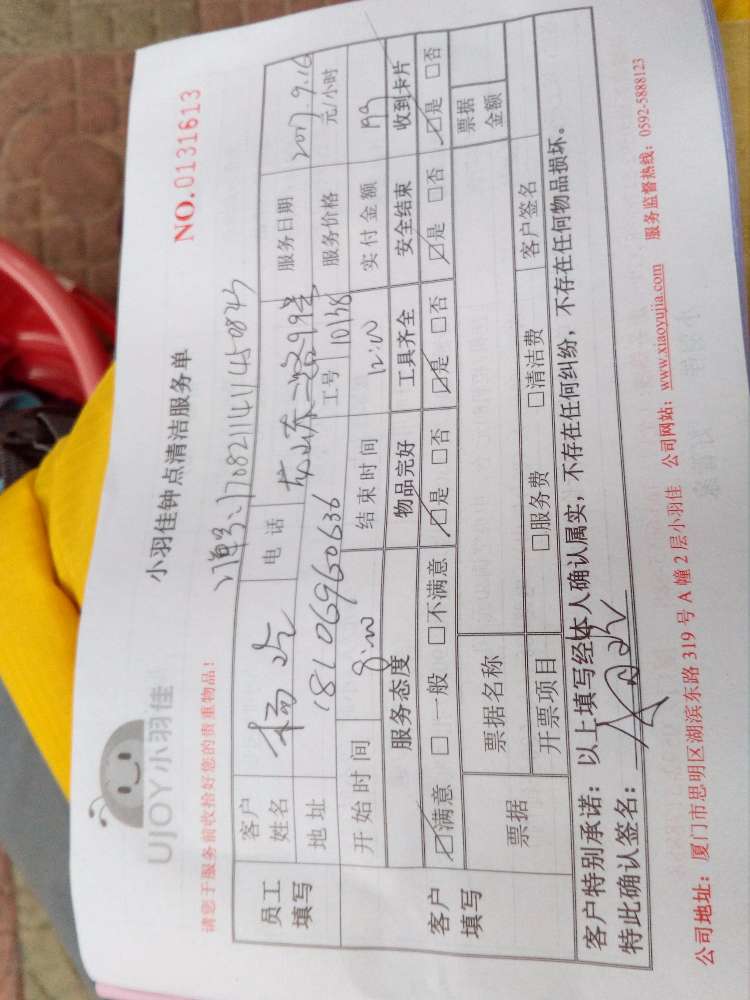 UJOY小羽佳
小羽佳钟点清洁服务单
NO.0131613
请您于服务前收拾好您的贵重物品!
员工填写 客户姓名 杨 电话 服务日期 2017.9.16
地址 18106960636 工号 10138 服务价格 元/小时
开始时间 8:00 结束时间 12:00 实付金额
客户填写 服务态度 物品完好 工具齐全 安全结束 收到卡片
☑满意 □一般 □不满意 ☑是 □否 ☑是 □否 ☑是 □否 ☑是 □否
票据 票据名称 票据金额
开票项目 □服务费 □清洁费 客户签名
客户特别承诺:以上填写经本人确认属实,不存在任何纠纷,不存在任何物品损坏。
特此确认签名:
公司地址:厦门市思明区湖滨东路319号A幢2层小羽佳 公司网站:www.xiaoyujia.com 服务监督热线:0592-5888123